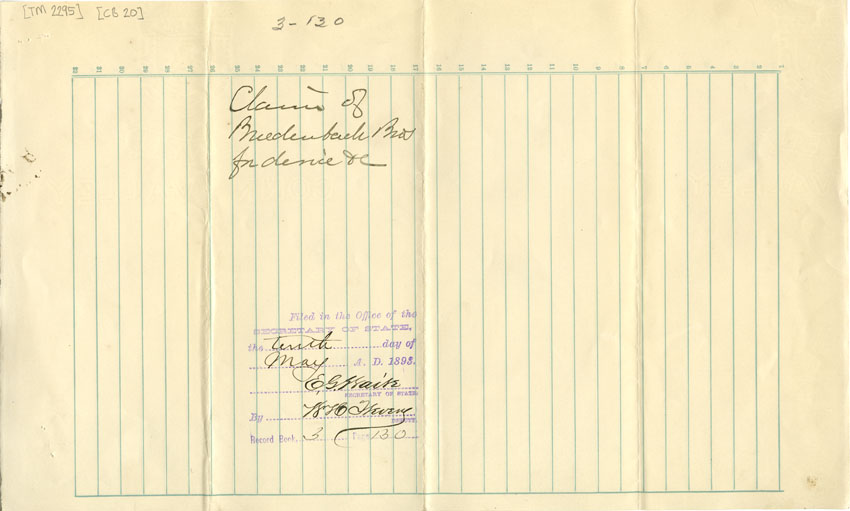 [TM 2295] [CB 20]
3-130
32 31 30 29 28 27 26 25 24 23 22 21 20 19 18 17 16 15 14 13 12 11 10 9 8 7 6 5 4 3 2 1
Claim of
Breedenback Bros
for device &c
Filed in the Office of the
SECRETARY OF STATE,
the tenth day of
May A. D. 1893.
E. G. Waite
SECRETARY OF STATE
By
DEPUTY.
Record Book 3 Page 130